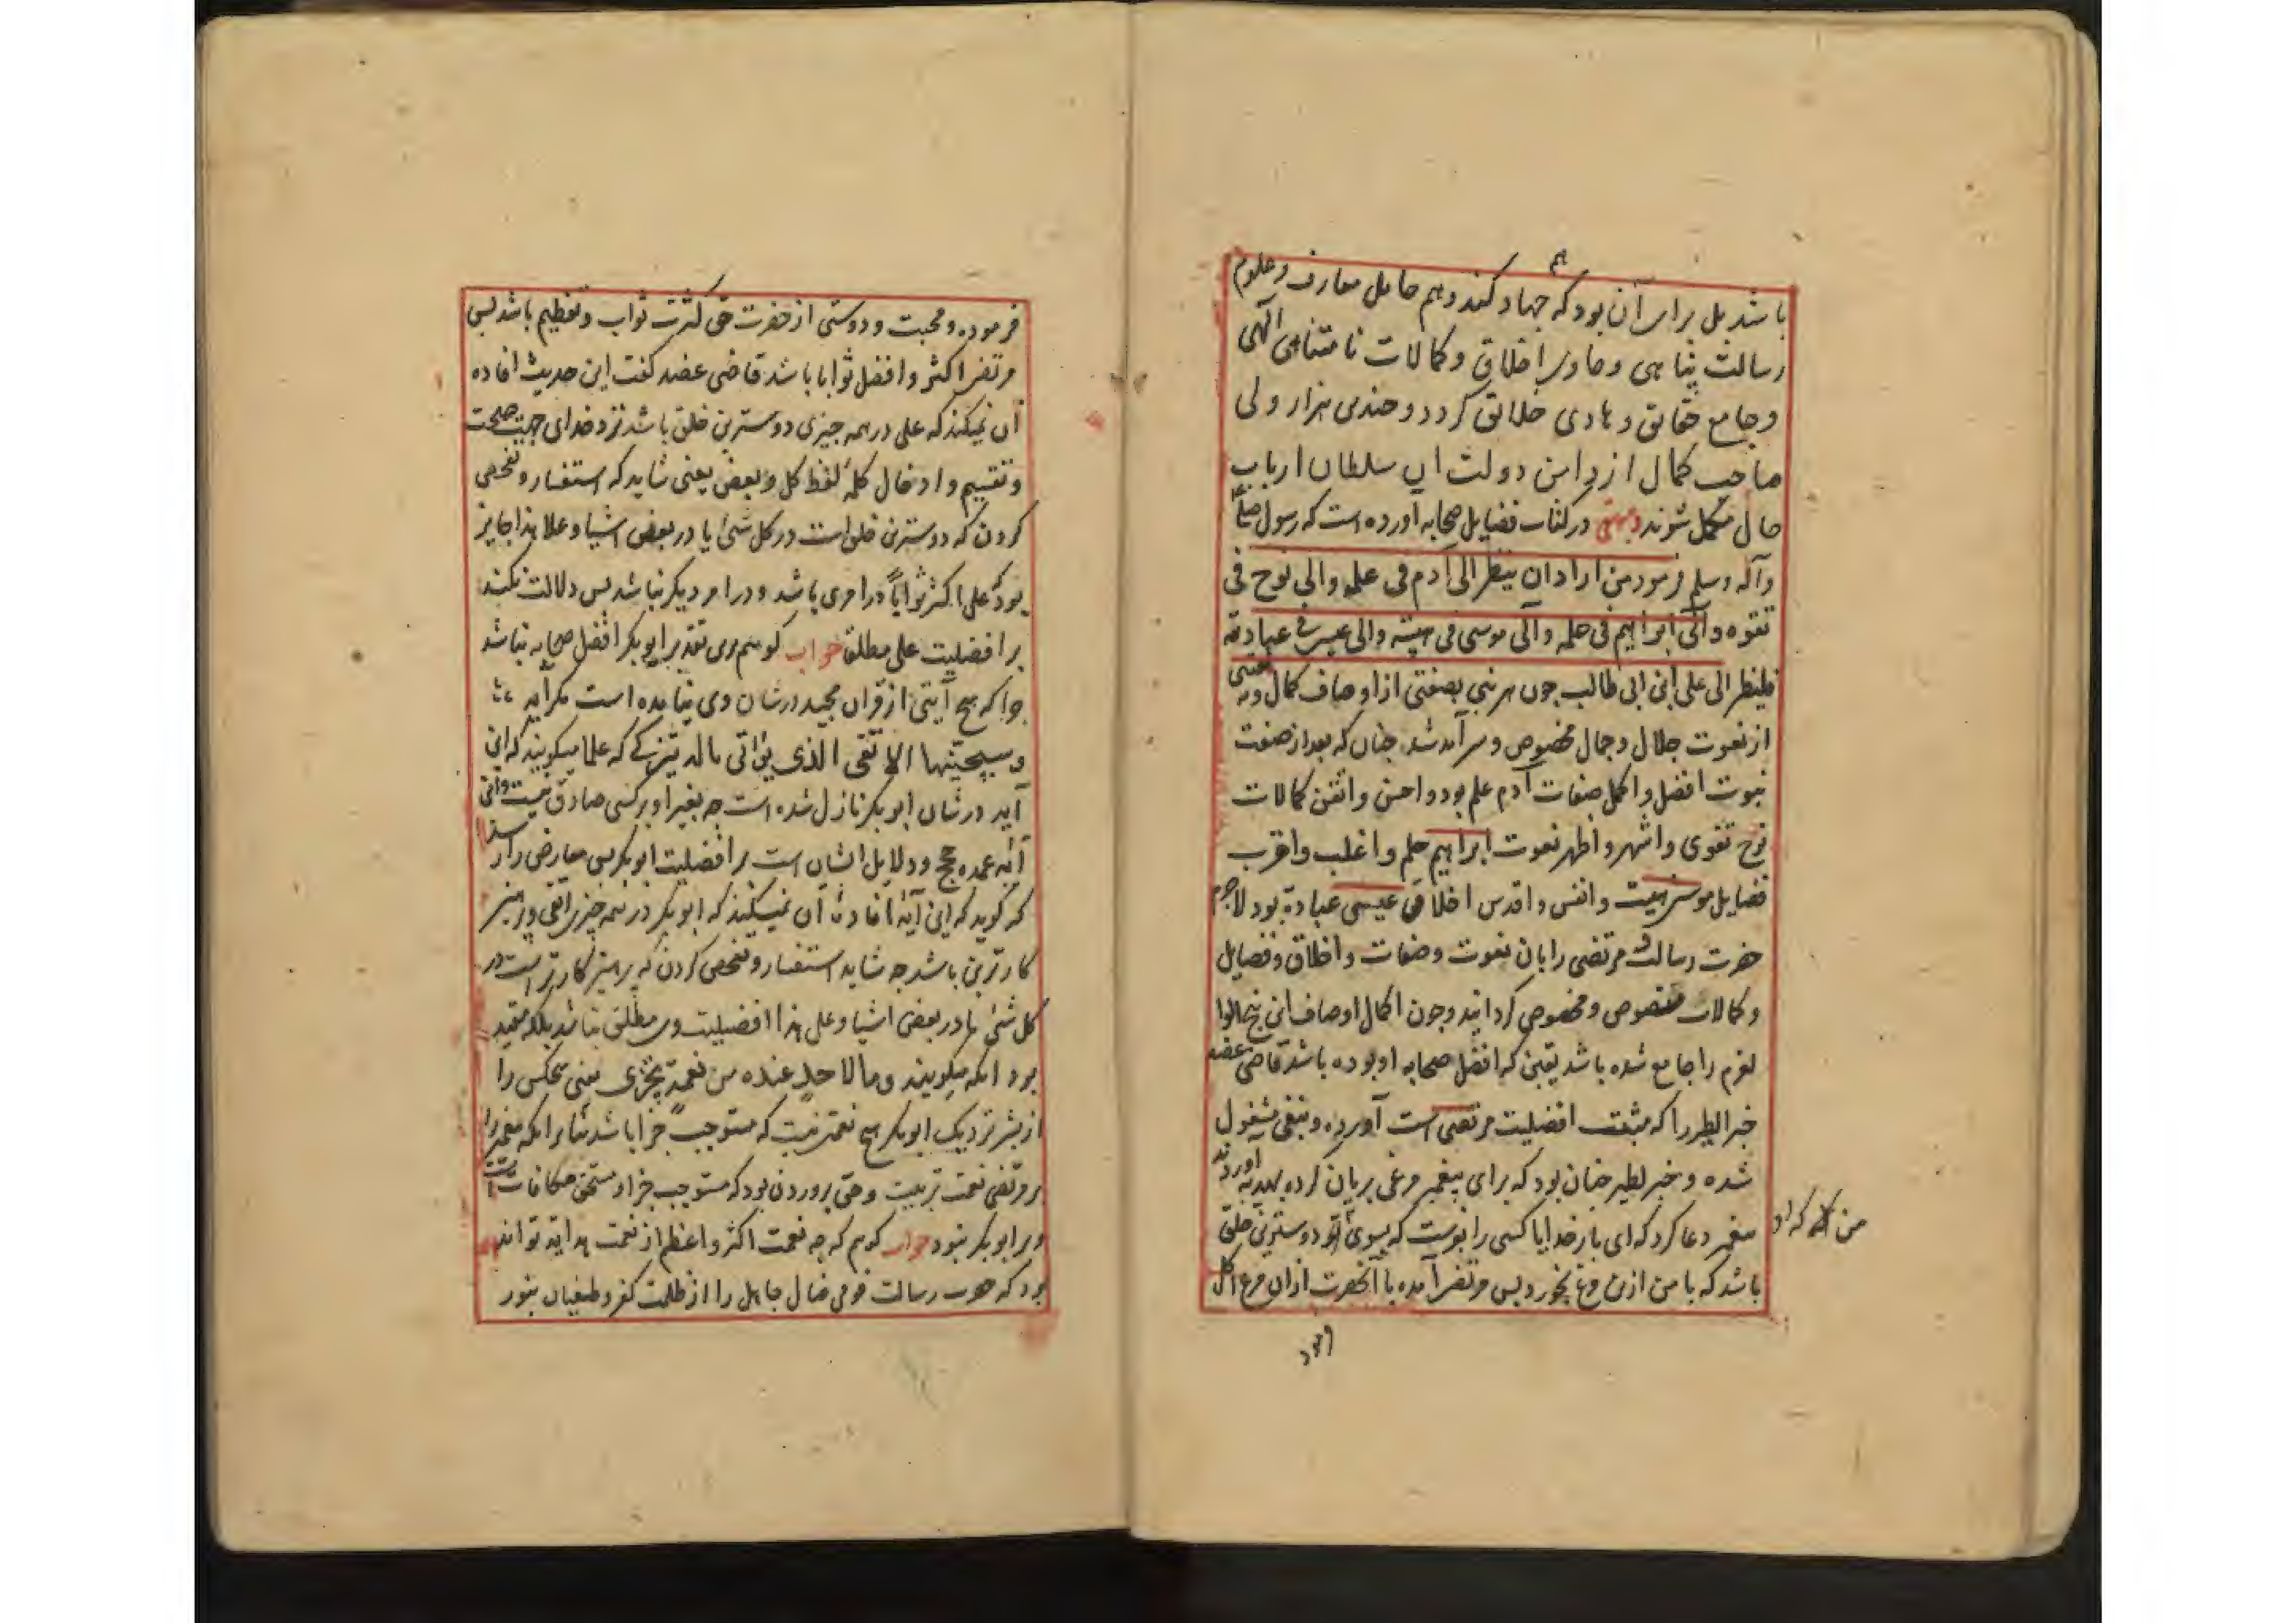 باشد بل برای آن بود که هم جهاد کند و هم حامل معارف و علوم
رسالت پناهی و حاوی اخلاق و کمالات نامتناهی الهی
و جامع حقایق و هادی خلایق کردد و چندین هزار ولی
صاحب کمال از دامن دولت ان سلطان ارباب
حال مکمل شوند و بیهقی در کتاب فضایل صحابه آورده است که رسول صلی
وآله وسلم فرمود من اراد ان ینظر الی آدم فی علمه والی نوح فی
تقوه والی ابراهیم فی حلمه والی موسی فی هیبته والی عیسی فی عبادته
فلینظر الی علی ابن ابی طالب چون هر نبی بصفتی از اوصاف کمال و نعتی
از نعوت جلال و جمال مخصوص و سرآمد شد چنان که بعد از صفت
نبوت افضل و اکمل صفات آدم علم بود و احسن و اتقن کمالات
نوح تقوی و اشهر و اظهر نعوت ابراهیم حلم و اغلب و اقرب
فضایل موسی هیبت و انفس و اقدس اخلاق عیسی عبادة بود لاجرم
حضرت رسالت مرتضی را بان نعوت و صفات و اخلاق و فضایل
و کمالات منصوص و مخصوص کردانید و چون اکمال اوصاف این پنج الوا
لعزم را جامع شده باشد یقین که افضل صحابه او بوده باشد قاضی عضد
خبر الطیر را که مثبت افضلیت مرتضی است آورده و بنفی مشغول
شده و خبر لطیر چنان بود که برای پیغمبر مرغی بریان کرده بهدیه آوردند
پیغمبر دعا کرد که ای بار خدایا کسی را بفرست که بسوی تو دوسترین خلق
من که او
باشد که با من ازین مرغ بخورد پس مرتضی آمده با آنحضرت ازان مرغ اکل
فرموده و محبت و دوستی از حضرت حق کثرت ثواب و تعظیم باشد پس
مرتضی اکثر و افضل ثوابا باشد قاضی عضد کفت این حدیث افاده
آن نمیکند که علی در همه چیزی دوسترین خلق باشد نزد خدای جهت صحت
و تقسیم و ادخال کلمه لفظ کل و بعض یعنی شاید که استفسار و تفحص
کردن که دوسترین خلق است در کل شئ یا در بعض اشیا و علا هذا جایز
بود که علی اکثر ثوابا در امری باشد و در امر دیکر نباشد پس دلالت نکند
بر افضلیت علی مطلقا جواب کویم برین تقدیر ابوبکر افضل صحابه نباشد
چرا که هیچ آیتی از قران مجید در شان وی نیامده است مکر آیه
و سیجنبها الاتقی الذی یؤتی ماله یتزکی که علما میکویند که این
آیه در شان ابوبکر نازل شده است چه بغیر او بر کسی صادق نیست و این
آیه عمده حجج و دلایل ایشان است بر افضلیت ابوبکر پس معارض را رسد
که کوید که این آیه افادت آن نمیکند که ابوبکر در همه چیزی اتقی و پرهیز
کارترین باشد چه شاید استفسار و تفحص کردن که پرهیز کارتر است در
کل شئ یا در بعض اشیا و علی هذا افضلیت وی مطلق نباشد بلکه مقید
بود انکه میکویند و ما لاحد عنده من نعمة تجزی یعنی هیچکس را
از بشر نزدیک ابوبکر هیچ نعمت نیست که مستوجب جزا باشد بنابر انکه پیغمبر را
بر مرتضی نعمت تربیت و حق پروردن بود که مستوجب جزا و مستحق مکافات است
و بر ابوبکر نبود جواب کویم که چه نعمت اکثر و اعظم از نعمت هدایه تواند
بود که حضرت رسالت قومی ضال جاهل را از ظلمت کفر و طغیان بنور